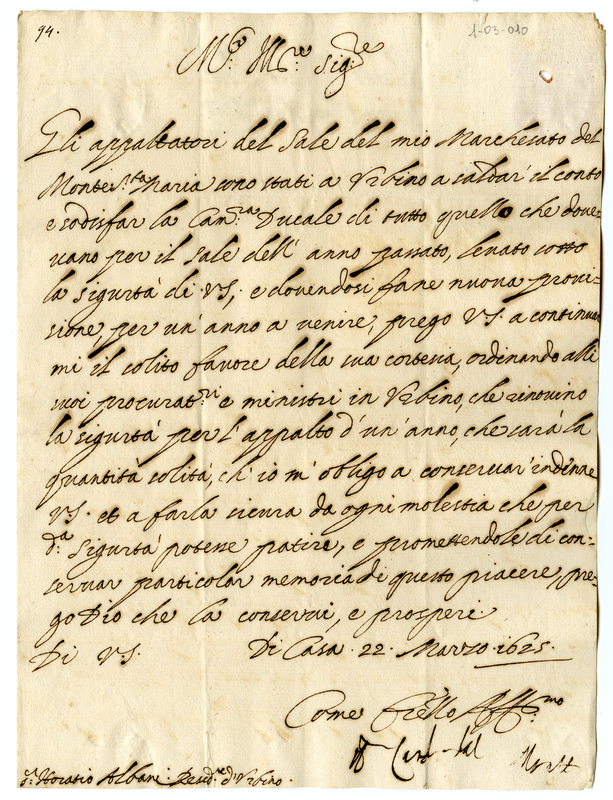 94.
1-03-010
M.to Ill.re sig.re
Gli appaltatori del Sale del mio Marchesato del
Monte s.ta Maria sono stati a Vrbino a saldar' il conto
e sodisfar la Cam.ra Ducale di tutto quello che doue-
uano per il sale dell' anno passato, leuato sotto
la sigurtà di VS, e douendosi fare nuoua proui-
sione, per un' anno a uenire, prego VS. a continuar
mi il solito fauore della sua cortesia, ordinando alli
suoi procurat.ri e ministri in Vrbino, che rinouino
la sigurtà per l' appalto d' un' anno, che sarà la
quantità solità, ch' io m' obligo a conseruar' indenne
VS. et a farla sicura da ogni molestia che per
d.a sigurtà potesse patire, e promettendole di con-
seruar particolar memoria di questo piacere, pre-
go Dio che la conserui, e prosperi
Di V.S. Di Casa . 22. Marzo . 1625.
Come fr̃ello Aff.mo
s.r Horatio Albani . Resid.e d' Vrbino .